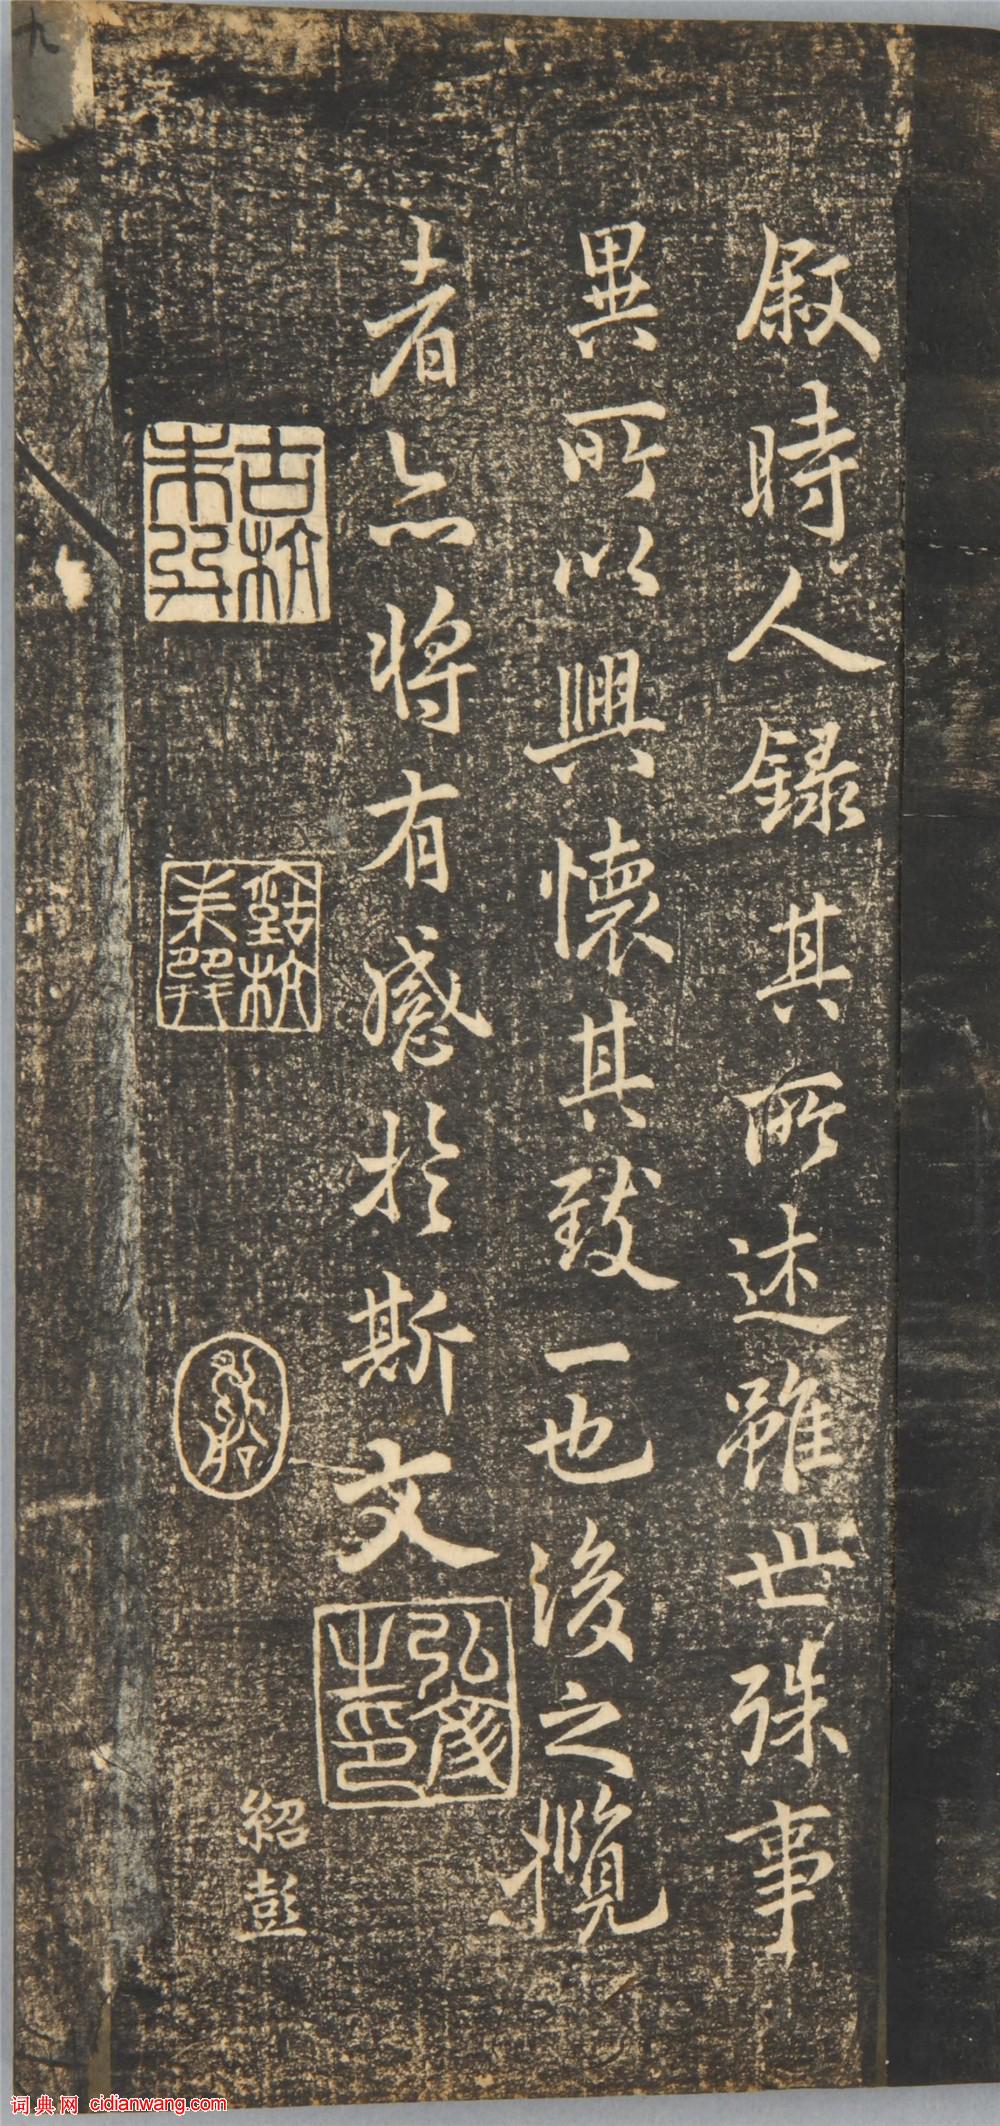 叙時人録其所述雖世殊事
異所以興懷其致一也後之攬
者亦将有感於斯文
紹彭
九
词典网 cidianwang.com